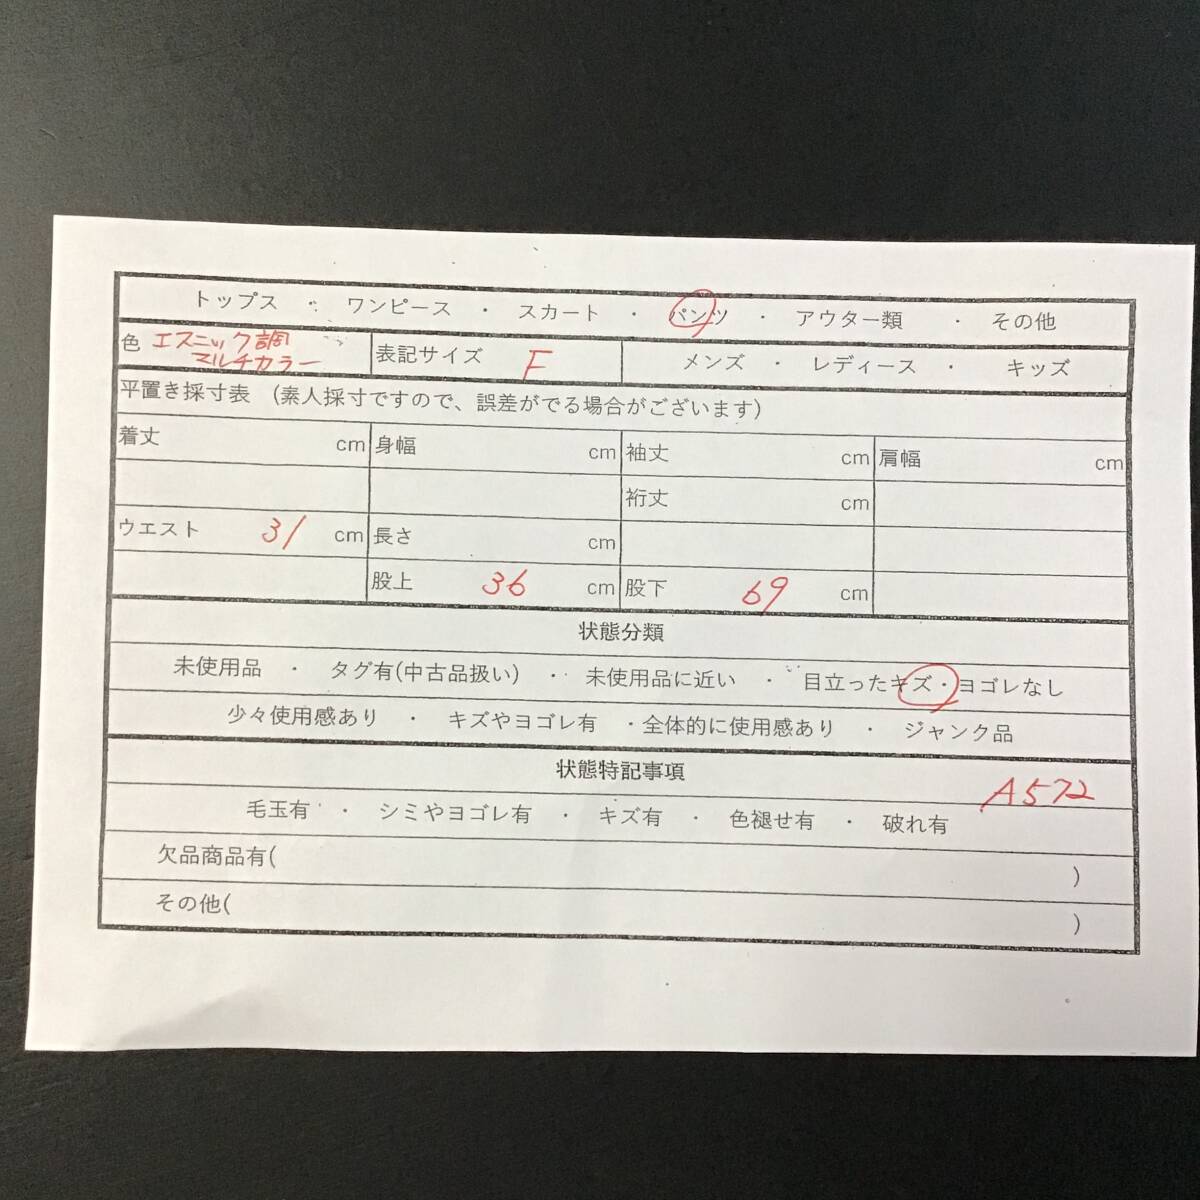 トップス ・ ワンピース ・ スカート ・ パンツ ・ アウター類 ・ その他
色 エスニック調
マルチカラー
表記サイズ F
メンズ ・ レディース ・ キッズ
平置き採寸表 (素人採寸ですので、誤差がでる場合がございます)
着丈 cm 身幅 cm 袖丈 cm 肩幅 cm
裄丈 cm
ウエスト 31 cm 長さ cm
股上 36 cm 股下 69 cm
状態分類
未使用品 ・ タグ有(中古品扱い) ・ 未使用品に近い ・ 目立ったキズ・ヨゴレなし
少々使用感あり ・ キズやヨゴレ有 ・全体的に使用感あり ・ ジャンク品
状態特記事項
A572
毛玉有 ・ シミやヨゴレ有 ・ キズ有 ・ 色褪せ有 ・ 破れ有
欠品商品有( )
その他( )